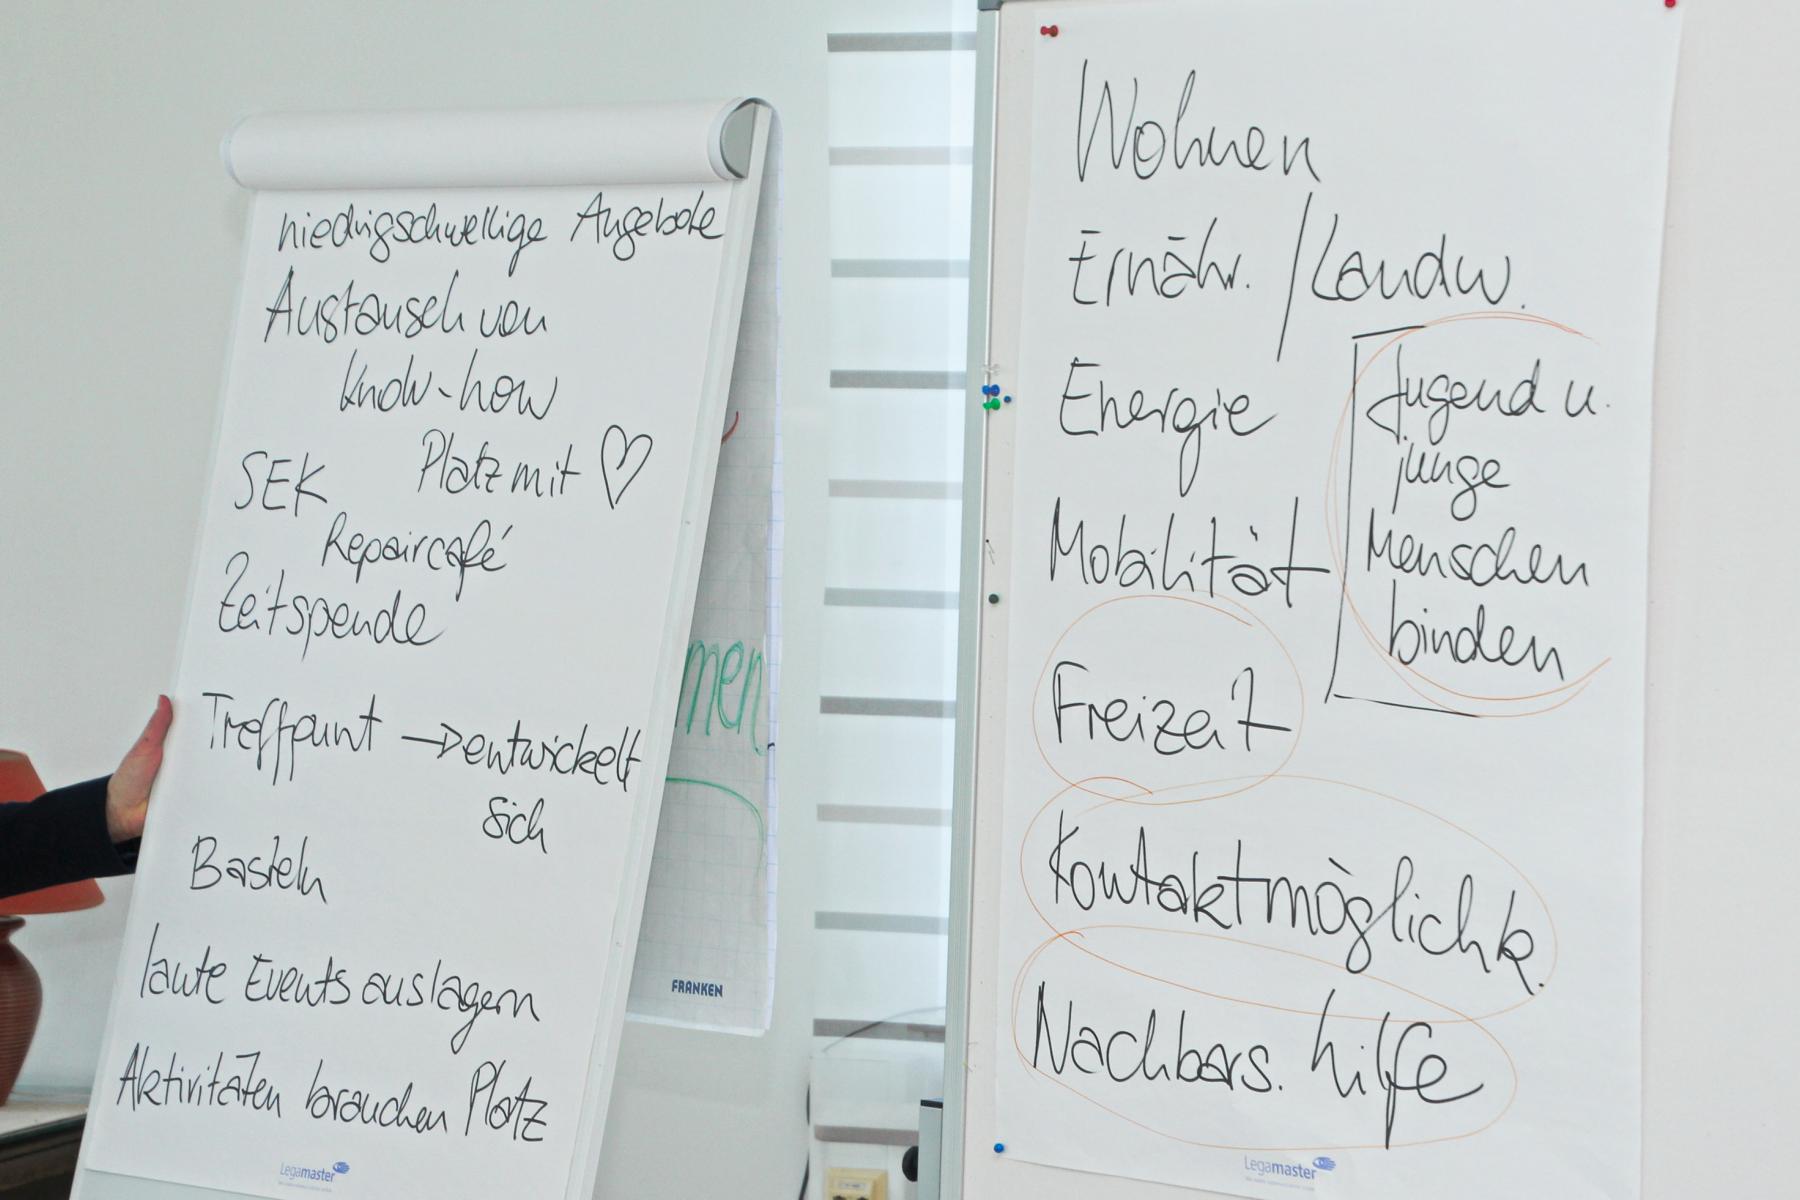 niedrigschwellige Angebote
Austausch von
Know-how
Platz mit ♡
SEK
Repaircafé
Zeitspende
Treffpunt → entwickelt
sich
Basteln
laute Events auslagern
Aktivitäten brauchen Platz
Legamaster
men
FRANKEN
Wohnen
Ernähr. / Landw.
Energie
Jugend u.
junge
Menschen
binden
Mobilität
Freizeit
Kontaktmöglichk.
Nachbars. hilfe
Legamaster